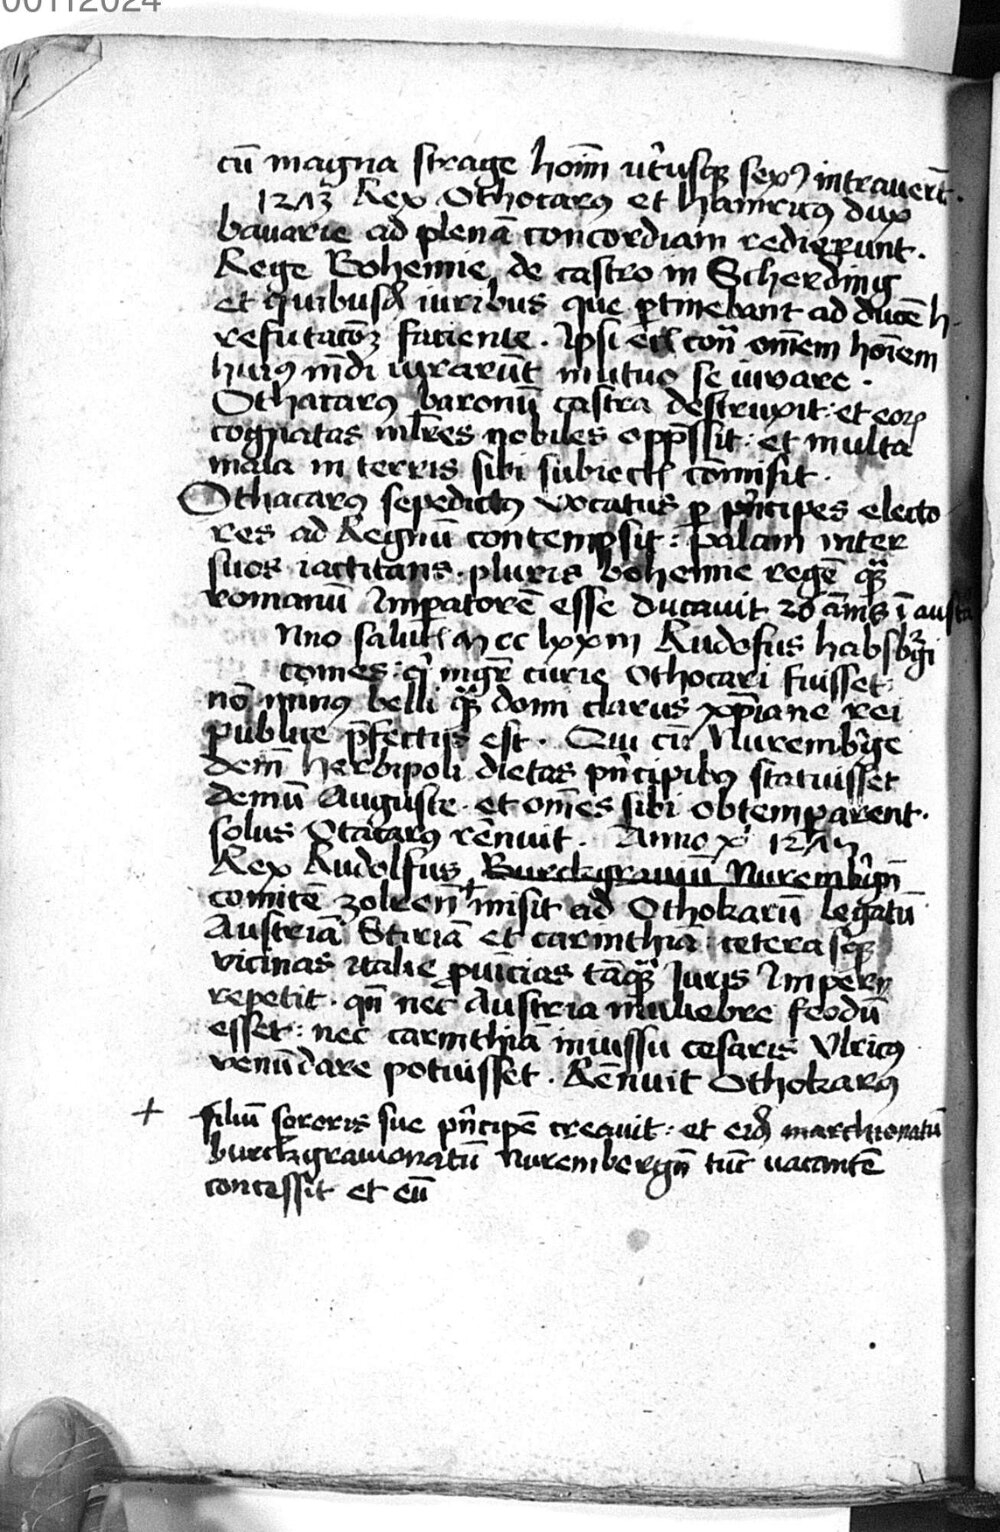 00112024
cū magna strage hoīm utriusqꝫ sexꝰ intraverūt.
1273 Rex Othocarꝰ et Hainricꝰ dux
bavarie ad plenā concordiam redierunt.
Rege Bohemie de castro in Scherding
et quibusdā iuribus que ꝑtinebant ad ducē h.
refutacōꝫ faciente. Ipsi eciā contra omēm hoīem
huiꝰ mūdi iurarūt mutuo se iuvare.
Othacarꝰ baronū castra destruxit: et eoꝝ
cognatas mlr̄es nobiles opp̄ssit: et multa
mala in terris sibi subiectis cōmisit.
Othacarꝰ sepedictꝰ vocatus ꝑ pn̄cipes electo
res ad Regnū contempsit: palam inter
suos iactitans. pluris bohemie regē qꝫ
romanū Imꝑatorē esse ducavit 20 ānis ī aust̄a
nno salutꝭ M cc lxxiii Rudofus habsbꝰgi
comes: qͥ mgr̄ curie Othocari fuisset
nō minꝰ belli qꝫ domi clarus xp̄iane rei
publice p̄fectus est. Qui cū Nurembꝰge
deīn herbipoli dietas pn̄cipibꝰ statuisset
demū Auguste. et om̄es sibi obtemperarent.
solus Otacarꝰ rēnuit. Anno xͥ 127
Rex Rudolfus Burckgraviū Nurembꝰgn̄
comitē zolrēn + misit ad Othokarū legatū
Austriā Stiriā et carinthiā: ceterasqꝫ
vicinas italie ꝓvīcias tāqꝫ Juris Imperii
repetit. qn̄ nec Austria muliebre feodū
esset: nec carinthiā iniussu cesaris Ulricꝰ
venūdare potuisset. Rēnuit Othokarꝰ
+ filiū sororis sue pn̄cipē creavit: et eidē marchionatū
burckgravionatū Nurembergn̄ tūc vacantē
concessit et eū